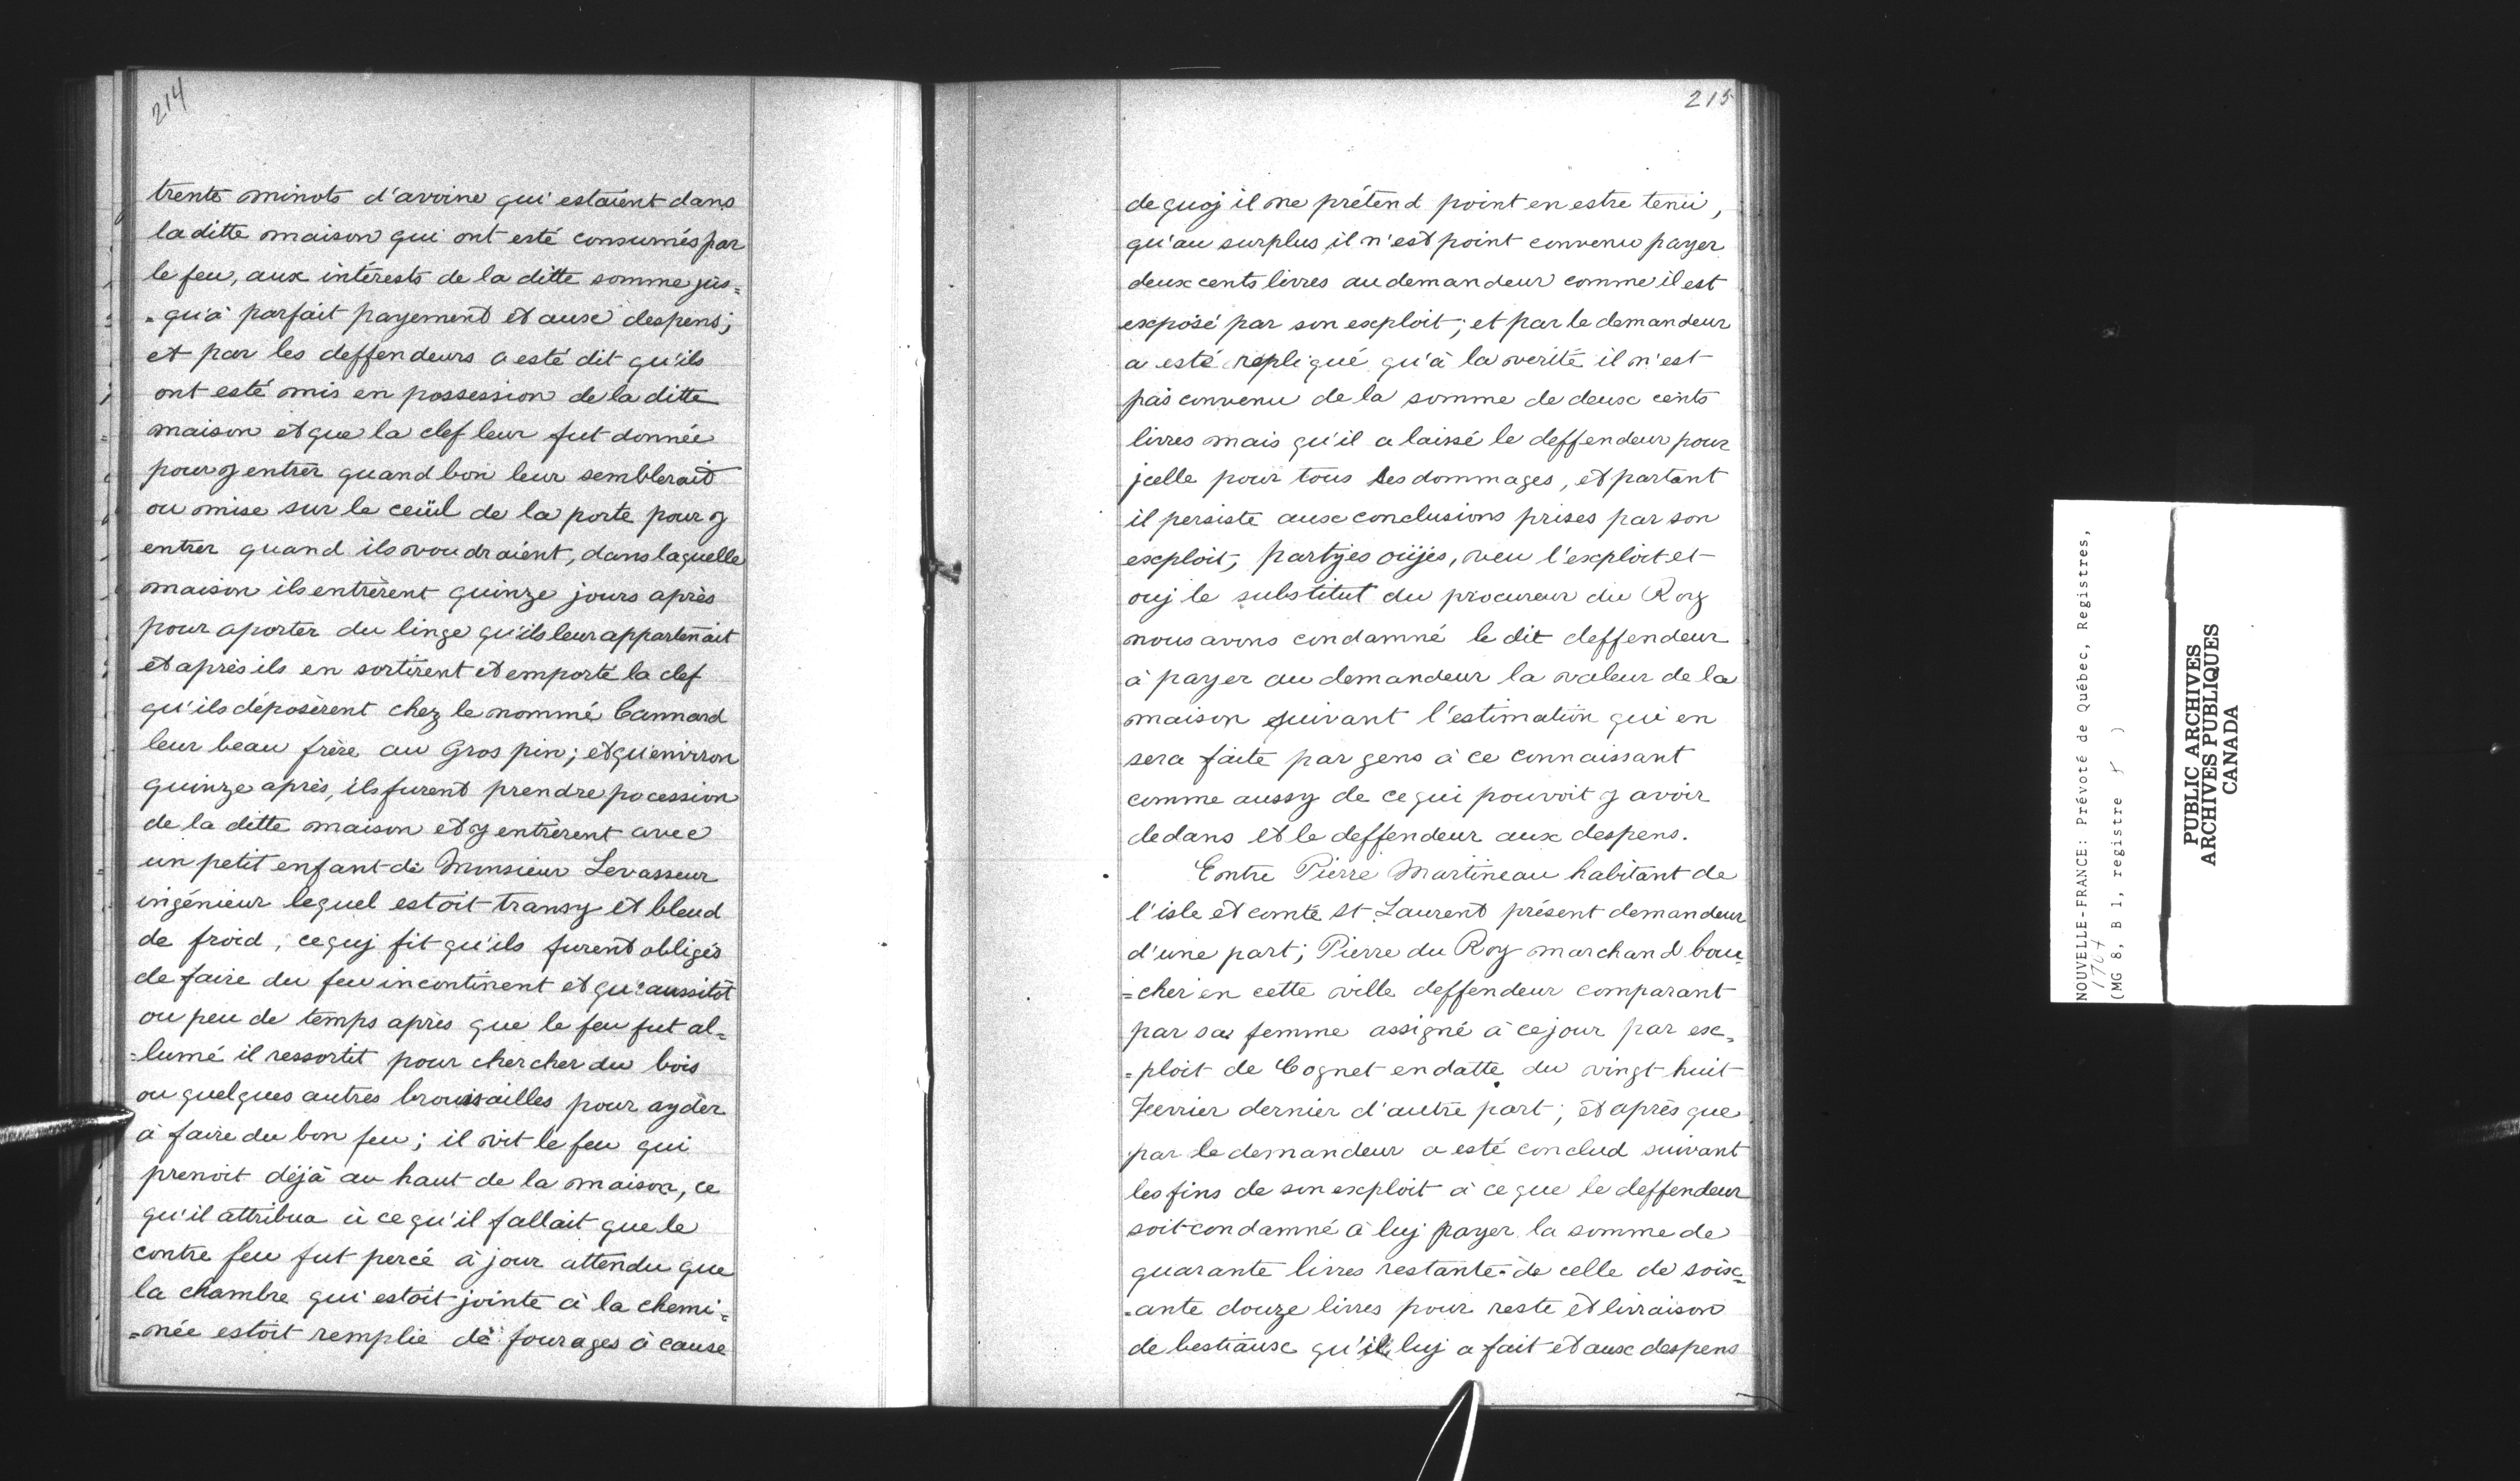 214
trente minots d'avoine qui estaient dans
la ditte maison qui ont esté consumés par
le feu, aux intérests de la ditte somme jus=
=qu'à parfait payement et aux despens;
et par les deffendeurs a esté dit qu'ils
ont esté mis en possession de la ditte
maison et que la clef leur fut donnée
pour y entrer quand bon leur semblerait
ou mise sur le ceüil de la porte pour y
entrer quand ils voudraient, dans laquelle
maison ils entrèrent quinze jours après
pour aporter du linge qu'ils leur appartenait
et après ils en sortirent et emporté la clef
qu'ils déposèrent chez le nommé Cannard
leur beau frère au Gros pin; et qu'environ
quinze après, ils furent prendre pocession
de la ditte maison et y entrèrent avec
un petit enfant de Monsieur Levasseur
ingénieur lequel estoit transy et bleud
de froid, ce quj fit qu'ils furent obligés
de faire du feu incontinent et qu'aussitôt
ou peu de temps après que le feu fut al=
=lumé il ressortit pour chercher du bois
ou quelques autres broussailles pour ayder
à faire du bon feu; il vit le feu qui
prenoit déjà au haut de la maison, ce
qu'il attribua à ce qu'il fallait que le
contre feu fut percé à jour attendu que
la chambre qui estoit jointe à la chemi=
=née estoit remplie de fourages à cause
215
de quoj il ne prétend point en estre tenu,
qu'au surplus il n'est point convenu payer
deux cents livres au demandeur comme il est
exposé par son exploit; et par le demandeur
a esté repliqué qu'à la verité il n'est
pas convenu de la somme de deux cents
livres mais qu'il a laissé le deffendeur pour
jcelle pour tous les dommages, et partant
il persiste aux conclusions prises par son
exploit, partyes oüyes, veu l'exploit et
ouj le substitut du procureur du Roy
nous avons condamné le dit deffendeur
à payer au demandeur la valeur de la
maison suivant l'estimation qui en
sera faite par gens à ce connaissant
comme aussy de ce qui pouvoit y avoir
dedans et le deffendeur aux despens.
Entre Pierre Martineau habitant de
l'isle et comté St Laurent présent demandeur
d'une part; Pierre du Roy marchand bou=
=cher en cette ville deffendeur comparant
par sa femme assigné à ce jour par ex=
=ploit de Cognet en datte du vingt huit
Feuvrier dernier d'autre part; et après que
par le demandeur a esté conclud suivant
les fins de son exploit à ce que le deffendeur
soit condamné à luj payer la somme de
quarante livres restante de celle de soix=
=ante douze livres pour reste et livraison
de bestiaux qu'il luj a fait et aux despens
NOUVELLE-FRANCE: Prévoté de Québec, Registres,
1707
(MG 8, B 1, registre )
PUBLIC ARCHIVES
ARCHIVES PUBLIQUES
CANADA